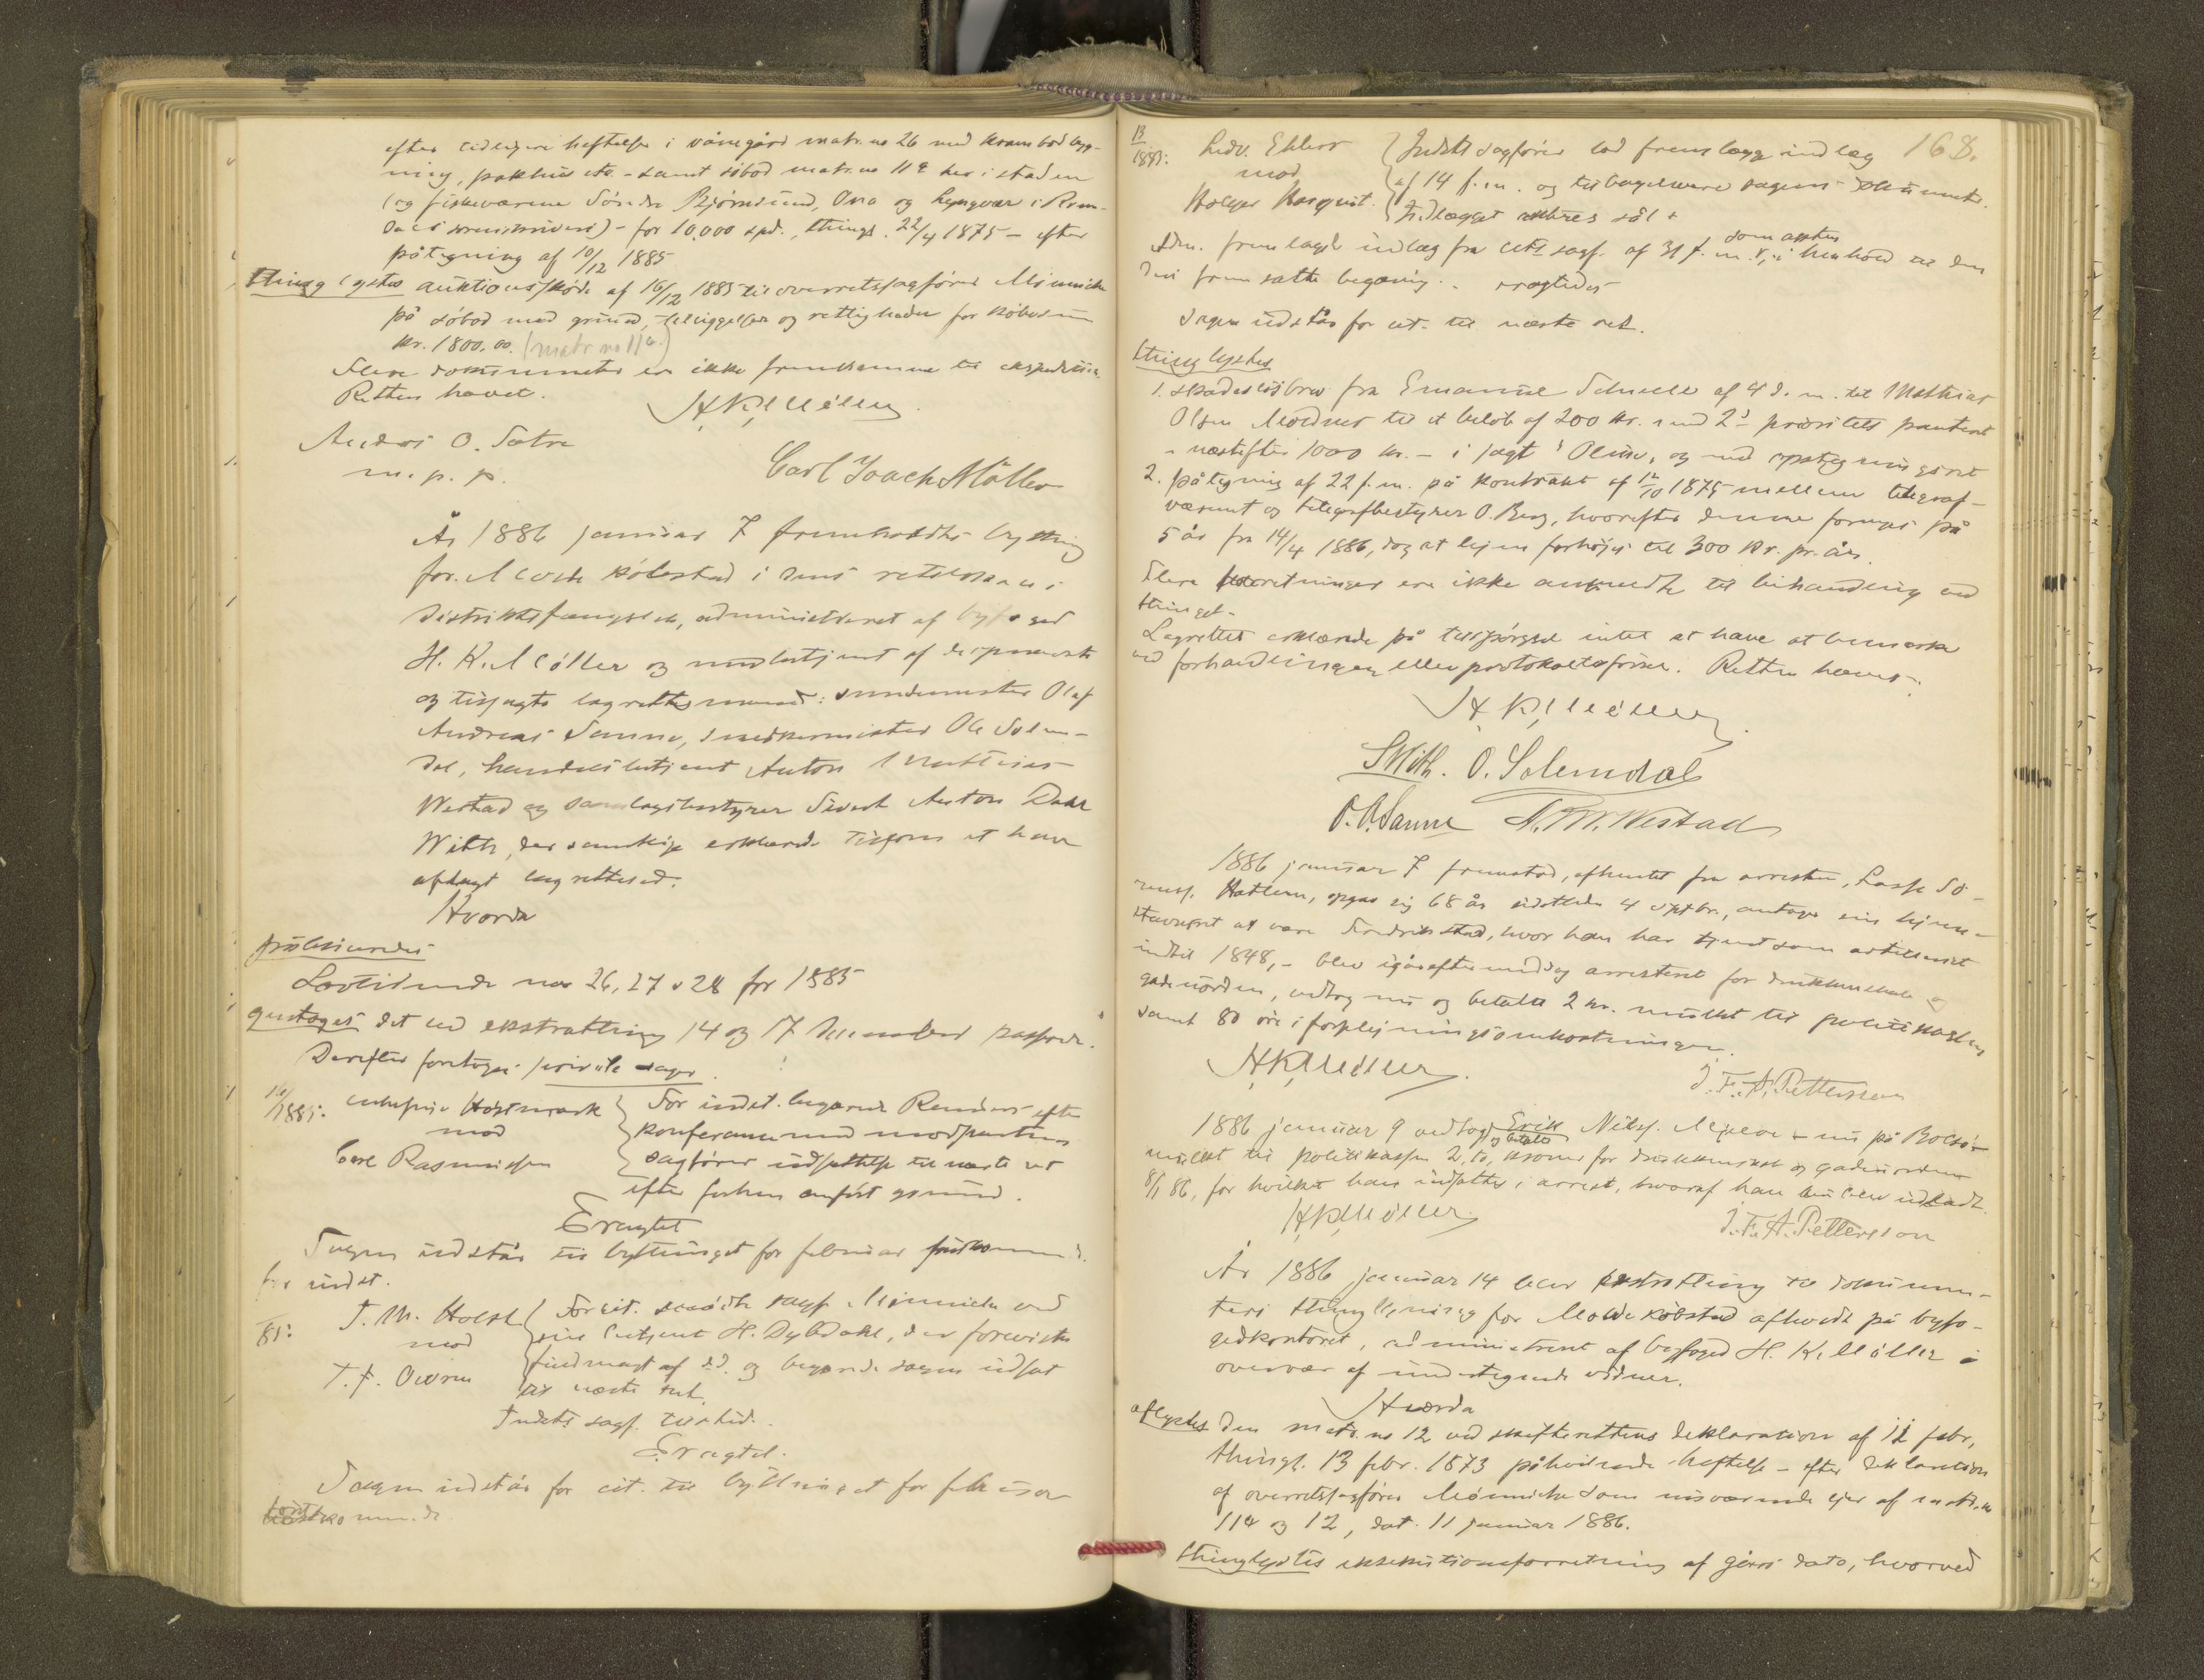 efter tidligere heftelse i våningård matr. no 26 med krambodbyg-
ning, pakhus etc. - samt søbod matr. no 11 e her i staden
(og fiskeværene Søndre Bjørnsund, Ona og Lyngvær i Rom-
dals sorenskriveri) - for 10,000 spd., thingl. 22/4 1875 - efter
påtegning af 10/12 1885
thinglystes auktionsskjøde af 16/12 1885 til overretssagfører Mönniche
på søbod med grund, tilliggelser og rettigheder for købesum
kr. 1800.00. (matr. no 11 e.)
Flere dokumenter er ikke fremkomne til ekspedition.
Retten hævet.
H. K. Møller
Andreas O. Sætre
m. p. p.
Carl Joach Møller
År 1886 januar 7 fremholdtes bything
for Molde købstad i dens retslokale i
distriktsfængslet, administreret af byfoged
H. K. Møller og med betjent af de opnævnte
og tilsagte lagrettesmænd: Olaf
Andreas Sanne, snedkermester Ole Solem-
dal, handelsbetjent Anton Mathias
Westad og samlagsbestyrer Sivert Anton Dahl
With, der samtlige erklærede tilforn at have
aflagt lagrettesed.
Hvorda
publiceredes
Lovtidende nos 26, 27 & 28 for 1885
gjentoges det ved ekstratting 14 og 17 december passerede.
Derefter foretoges private sager.
16/1885: Høstmark
mod
Carl Rasmussen
For indst. begærede efter
konferance med modpartens
sagfører udsættelse til næste ret
efter forhen anført grund.
Eragtet
Sagen udstår til bythinget for februar førstkommende
for indst.
/85: T. M. Holst
mod
T. F. Owren
For cit. mødte sagf. Mönniche ved
sin betjent H. Dybdahl, der foreviste
fuldmagt af d.d. og begærede sagen udsat
til næste ret.
Indsts sagf. tilsted.
Eragtet.
Sagen udstår for cit. til bythinget for februar
førstkommende.
168.
13/1885: Ludv. Ehlers
mod
Holger Hasquist.
Indsts sagfører lod fremlægge indlæg
af 14 f. m. og tilbageleverede sagens dokumenter.
Indlægget sål.
Adm. fremlagde indlæg fra cits sagf. af 31 f. m. som i henhold til den
deri fremsatte begæring eragtedes
Sagen udstår for cit. til næste ret.
thinglystes
1. skadesløsbrev fra Emanuel Schiele af 4 d. m. til Mathias
Olsen Moldnes til et beløb af 200 kr. med 2' prioritets panteret
- næstefter 1000 kr. - i jagt "Oline", og med opsigningsret
2. påtegning af 22 f. m. på kontrakt af 12/10 1875 mellem telegraf-
væsenet og telegrafbestyrer O. Berg, hvorefter denne fornyes på
5 år fra 14/4 1886, dog at lejen forhøjes til 300 kr. pr. år.
Flere forretninger ere ikke anmeldte til behandling ved
thinget.
Lagrettet erklærede på tilspørgsel intet at have at bemærke
ved forhandlingen eller protokoltilførselen. Retten hævet.
H. K. Møller
SWith. O. Solemdal
O. A. Sanne A. M. Westad
1886 januar 7 fremstod, afhentet fra arresten, Lasse Sö-
rens. Hatlem, opgav sig 68 år sidstleden 4 septbr., antager sin hjem-
stavnsret at være Fredrikstad, hvor han har tjent som artillerist
indtil 1848, - blev igår eftermiddag arresteret for drukkenskab og
gadeuorden, vedtog nu og betalte 2 kr. mulkt til politikassen
samt 80 øre i forplejningsomkostninger.
H. K. Møller.
J. F. A. Petterson
1886 januar 9 vedtog og betalte Erik Nils. - nu på Bolsø -
mulkt til politikassen 2, to, kroner for drukkenskab og gadeuorden
8/1 86, for hvilket han indsattes i arrest, hvoraf han nu blev udladt.
H. K. Møller
J. F. A. Petterson
År 1886 januar 14 blev ekstratting til dokumen-
ters thinglysning for Molde købstad afholdt på byfo-
gedkontoret, administreret af byfoged H. K. Møller i
overvær af undertegnede vidner.
Hvorda
aflystes den matr. no 12 ved skifterettens deklaration af 12 febr.,
thingl. 13 febr. 1873 påhvilende heftelse - efter deklaration
af overretssagfører Mönniche som nuværende ejer af matr. no
114 og 12, dat. 11 januar 1886.
thinglystes eksekutionsforretning af gårs dato, hvorved